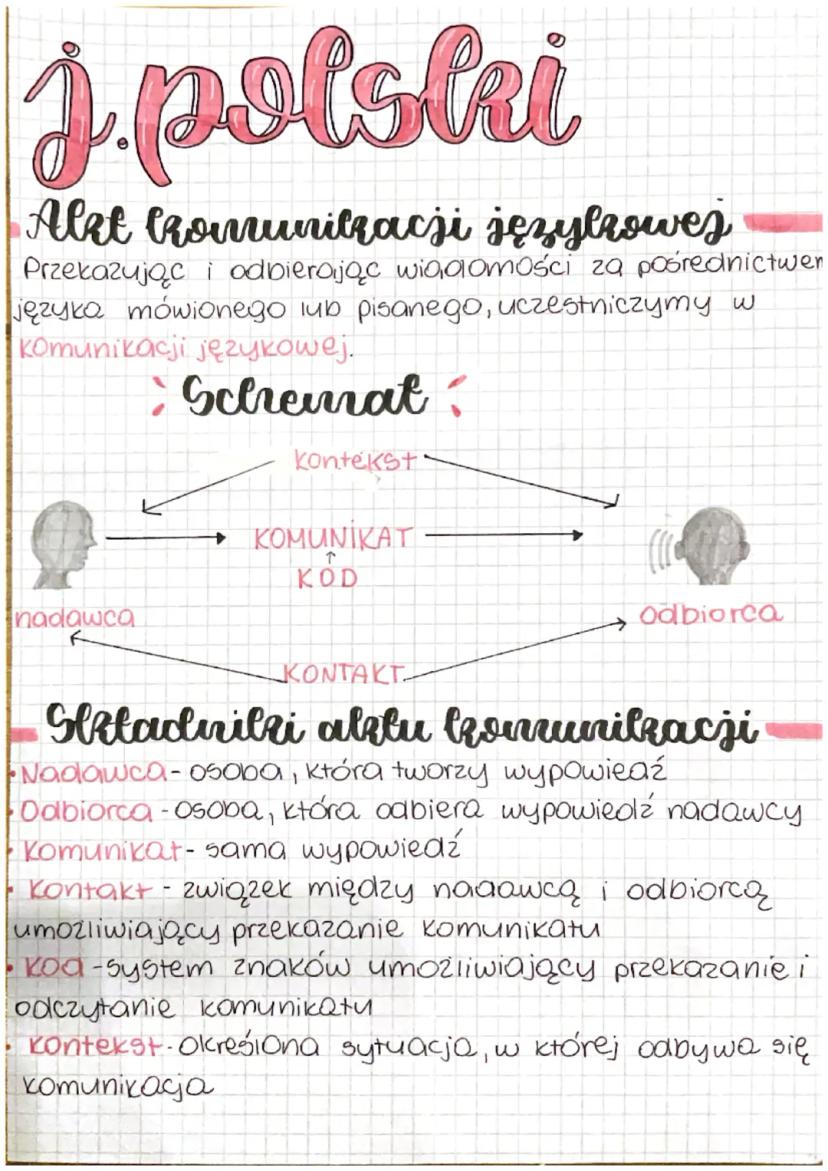 j. polski
Akt komunikacji językowej
Przekazując i odbierając wiadomości za pośrednictwem
języka mówionego lub pisanego, uczestniczymy w
komunikacji językowej.
Schemat
kontekst
KOMUNIKAT
KOD
nadawca
odbiorca
KONTAKT
Składniki aktu komunikacji
• Nadawca - osoba, która tworzy wypowiedź
• Odbiorca - osoba, która odbiera wypowiedź nadawcy
• Komunikat - sama wypowiedź
• Kontakt - związek między nadawcą i odbiorcą
umożliwiający przekazanie komunikatu
• Kod - system znaków umożliwiający przekazanie i
odczytanie komunikatu
• Kontekst - określona sytuacja, w której odbywa się
komunikacja